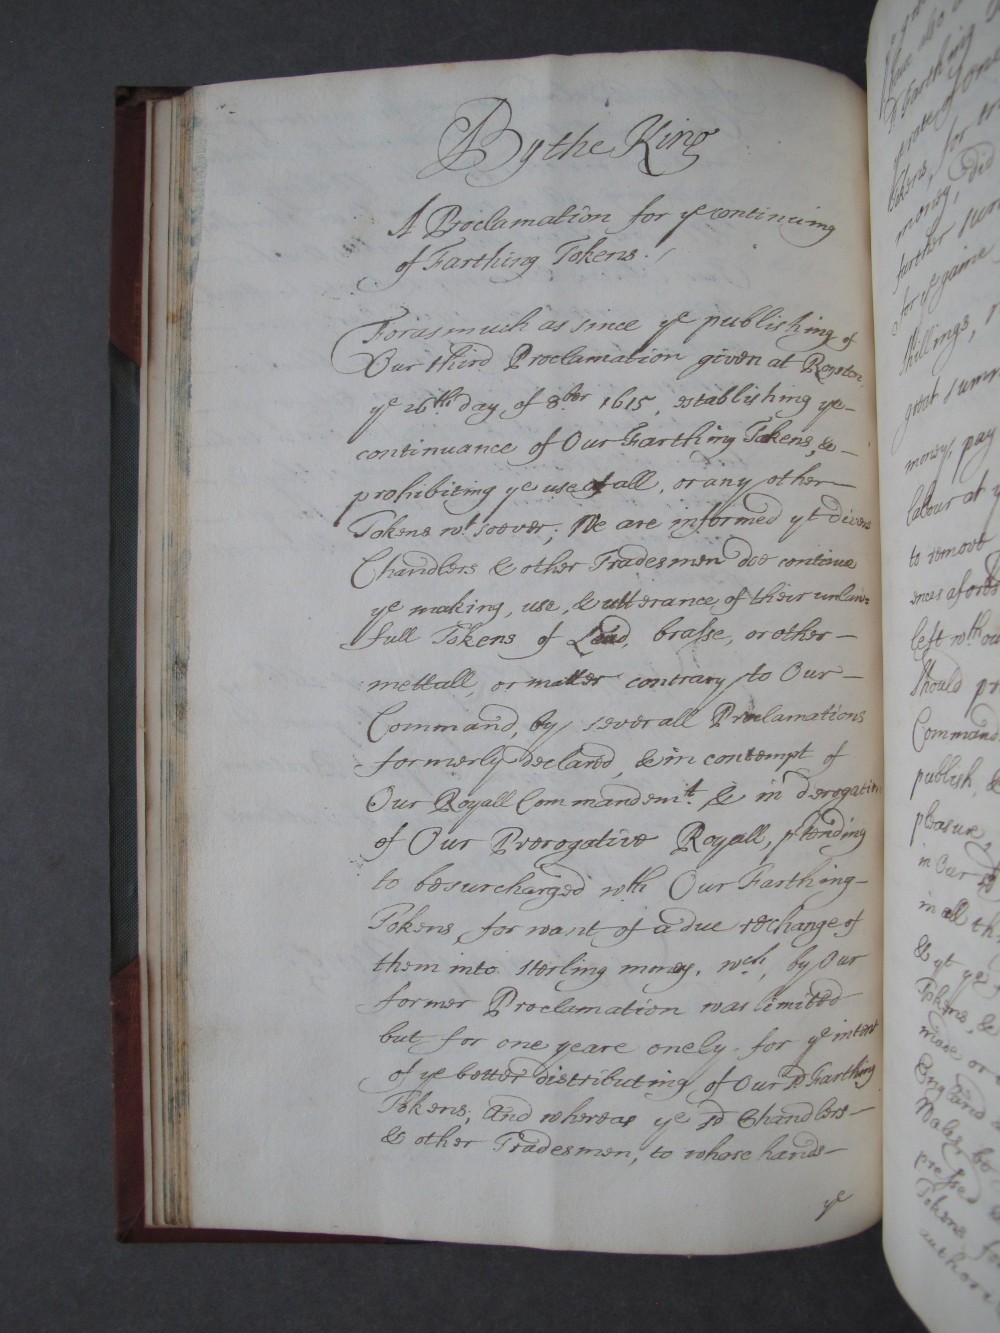 By the King
A Proclamation for ye continuing
of Farthing Tokens.
Forasmuch as since ye publishing of
Our third Proclamation given at Royston,
ye 26th day of 8ber 1615, establishing ye
continuance of Our Farthing Tokens, &
prohibiting ye use of all, or any other
Tokens wt soever; We are informed yt divers
Chandlers & other Tradesmen doe continue
ye making, use, & utterance of their unlaw=
full Tokens of Lead, brasse, or other
mettall, or matter contrary to Our
Command, by severall Proclamations
formerly declared, & in contempt of
Our Royall Commandemt. & in derogation
of Our Prerogative Royall, ptending
to be surcharged wth Our Farthing
Tokens, for want of a due rechange of
them into sterling money, wch, by Our
former Proclamation was limited
but for one yeare onely for ye intent
of ye better distributing of Our sd Farthing
Tokens; And whereas ye sd Chandlers
& other Tradesmen, to whose hands
ye
of Farthing
Tokens, for
money, did
further sum
for ye game
shillings,
great summ
money, pay
labour at
to remove
ences afores
left wthou
should pr
Command
publish, &
pleasure
in Our
in all th
& yt ye
Tokens, &
made or
England
Wales be
pressed
Tokens for
authori